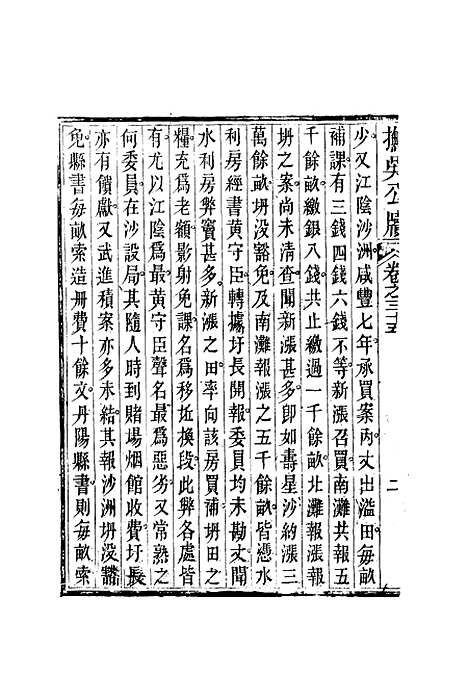 撫吳公牘 卷三十五 二
少又江陰沙洲咸豐七年承買案內丈出溢田每畝
補課有三錢四錢六錢不等新漲召買南灘共報五
千餘畝繳銀八錢共止繳過一千餘畝北灘報漲報
坍之案尚未清查聞新漲甚多卽如壽星沙約漲三
萬餘畝坍沒豁免及南灘漲之五千餘畝皆憑水
利房經書黃守臣轉據圩長開報委員均未勘丈聞
水利房弊竇甚多新漲之田率向該房買補坍田之
糧充爲老額影射免課名爲移坵換段此弊各處皆
有尤以江陰爲最黃守臣聲名最爲惡劣又常熟之
何委員在沙設局其隨人時到賭場烟館收費圩長
亦有饋獻又武進積案亦多未結其報沙洲坍沒豁
免縣書每畝索造册費十餘文丹陽縣書則每畝索